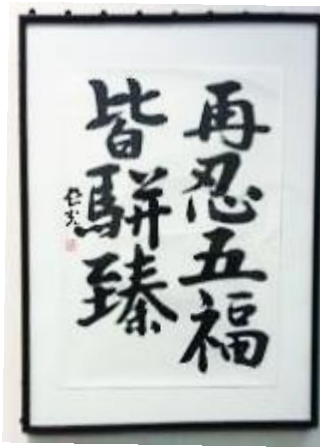 再忍五福
皆駢臻